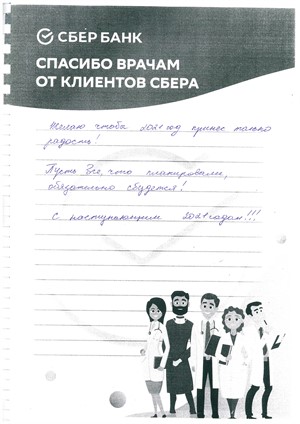 СБЕР БАНК
СПАСИБО ВРАЧАМ
ОТ КЛИЕНТОВ СБЕРА
Желаю чтобы 2021 год принес только
радость!
Пусть Все, что планировали,
обязательно сбудется!
С наступающим 2021 годом!!!